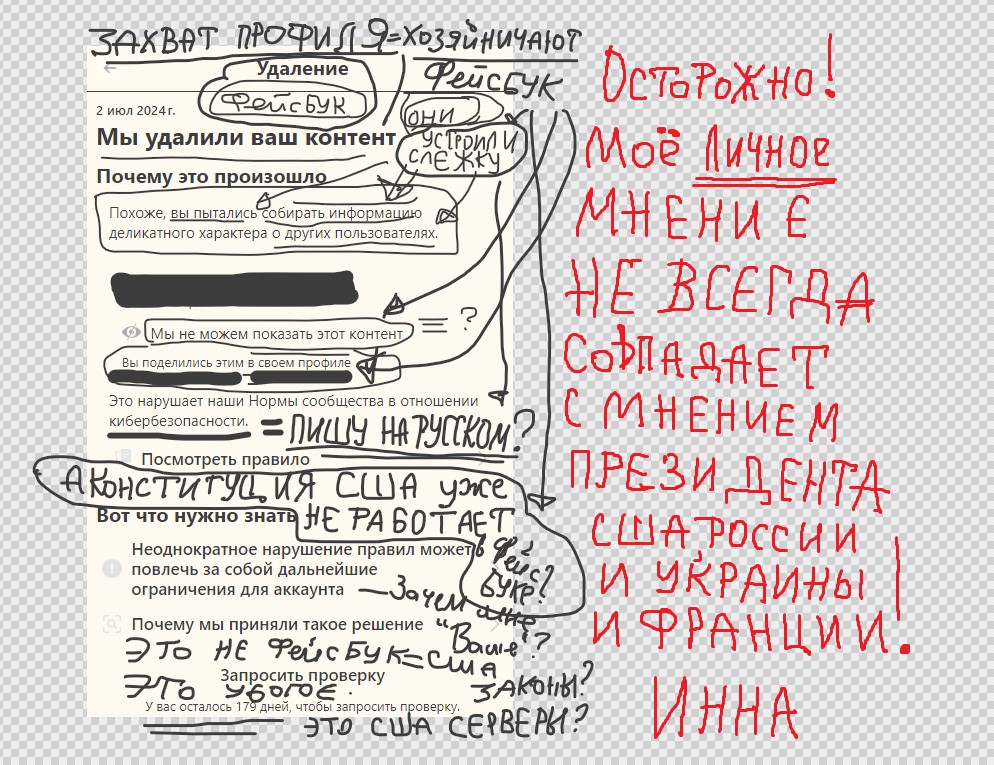 ЗАХВАТ ПРОФИЛЯ=ХОЗЯЙНИЧАЮТ
Удаление
ФЕЙСБУК
ФЕЙСБУК
ОНИ
УСТРОИЛИ
СЛЕЖКУ
2 июл 2024 г.
Мы удалили ваш контент
Почему это произошло
Похоже, вы пытались собирать информацию
деликатного характера о других пользователях.
Мы не можем показать этот контент
= ?
Вы поделились этим в своем профиле
Это нарушает наши Нормы сообщества в отношении
кибербезопасности.
= ПИШУ НА РУССКОМ?
Посмотреть правило
А КОНСТИТУЦИЯ США уже
НЕ РАБОТАЕТ
в Фейс?
БУКе?
Вот что нужно знать
Неоднократное нарушение правил может
повлечь за собой дальнейшие
ограничения для аккаунта
— Зачем мне
"Ваше"?
Почему мы приняли такое решение
ЭТО НЕ ФЕЙСБУК=США
Запросить проверку
ЭТО УБОГОЕ.
ЗАКОНЫ?
У вас осталось 179 дней, чтобы запросить проверку.
ЭТО США СЕРВЕРЫ?
ОСТОРОЖНО!
МОЁ ЛИЧНОЕ
МНЕНИЕ
НЕ ВСЕГДА
СОВПАДАЕТ
С МНЕНИЕМ
ПРЕЗИДЕНТА
США РОССИИ
И УКРАИНЫ
И ФРАНЦИИ.!
ИННА